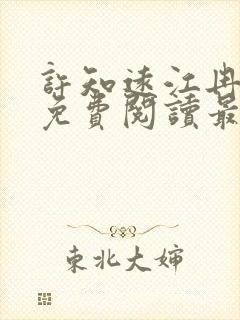 許知遠江冉
免費閱讀最
東北大嬸